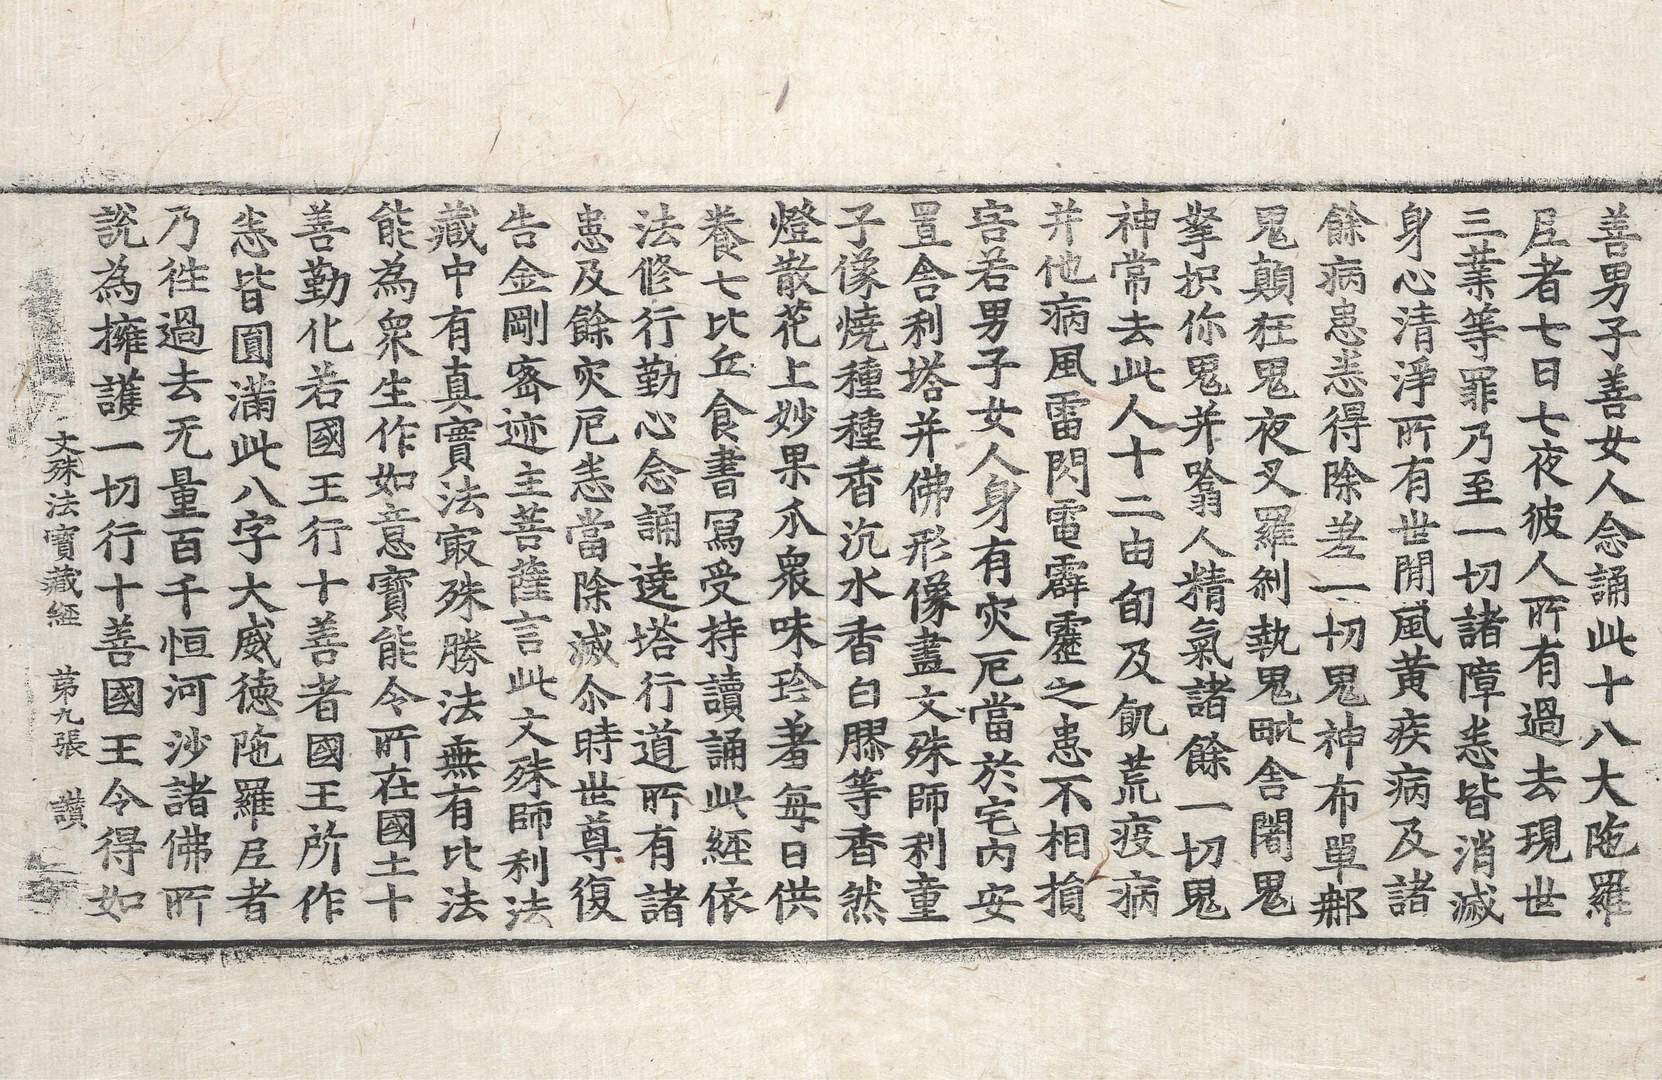 善男子善女人念誦此十八大陁羅
𡰱者七日七夜彼人所有過去現世
三業等罪乃至一切諸障悉皆消滅
身心清淨所有世間風黃疾病及諸
餘病患悉得除差一切鬼神布單那
鬼顛狂鬼夜叉羅剎執鬼毗舍闍鬼
拏枳你鬼并噏人精氣諸餘一切鬼
神常去此人十二由旬及飢荒疫病
并他病風雷閃電霹靂之患不相損
害若男子女人身有灾厄當於宅內安
置舍利塔并佛形像畫文殊師利童
子像燒種種香沉水香白膠等香然
燈散花上妙果𤓰衆味珎著每日供
養七比丘食書寫受持讀誦此經依
法修行勤心念誦遶塔行道所有諸
患及餘灾厄悉當除滅尒時世尊復
告金剛宻迹主菩薩言此文殊師利法
藏中有真實法㝡殊勝法無有比法
能為衆生作如意寶能令所在國土十
善勤化若國王行十善者國王所作
悉皆圓滿此八字大威徳陁羅𡰱者
乃徃過去无量百千恒河沙諸佛所
說為擁護一切行十善國王令得如
文殊法寶藏経　第九張　讃